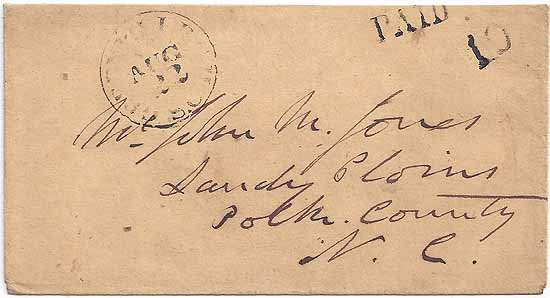 AUG
22
PAID
10
Mr John M. Jones
Sandy Plains
Polk. County
N. C.